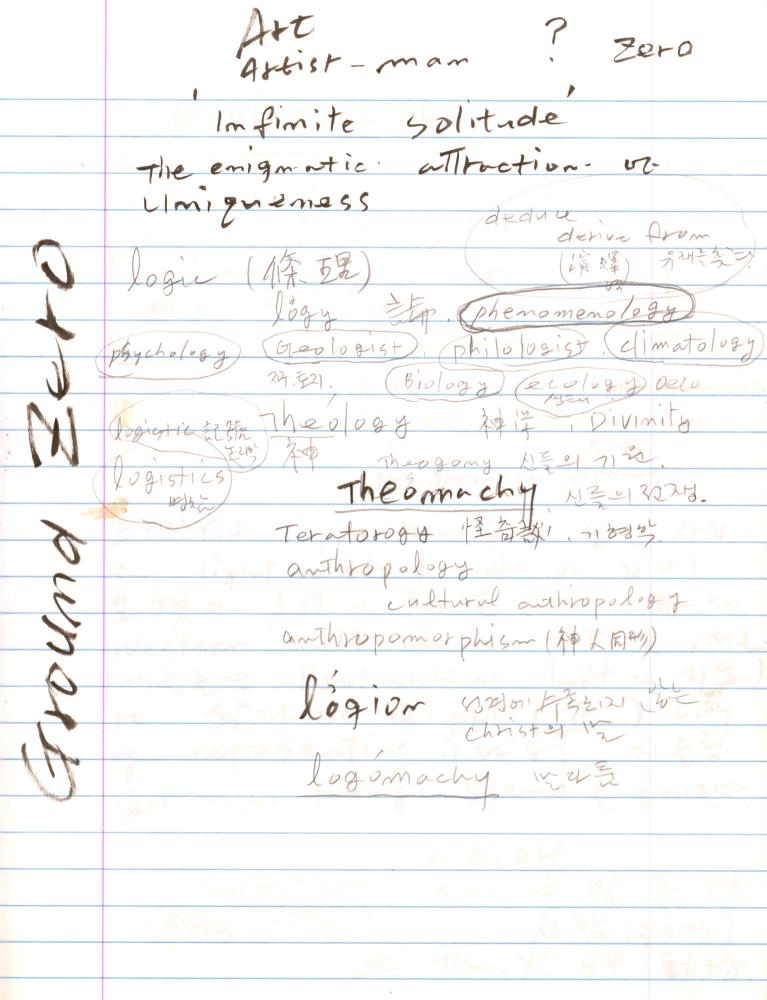 Art ? Zero
Artist-man
'Infinite solitude'
The enigmatic attraction of
Uniqueness
deduce
derive from
(演繹)
logic (條理)
lógy 論 phenomenology
psychology Geologist philologist climatology
Biology ecology oeco
logistic 記號論 Theology 神学 Divinity
논리학 神
Theogony 신들의 기원.
logistics
병참술
Theómachy 신들의 전쟁.
Teratorogy 기형학
anthropology
cultural anthropology
anthropomorphism (神人同形)
lógion 성경에 수록되지 않은
christ의 말
logómachy 말다툼
Ground Zero